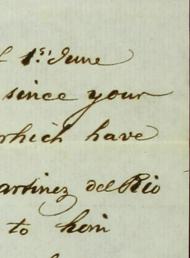 f 1st June
since your
which have
artinez del Rio
to him